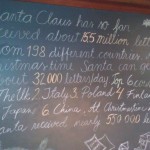 Santa Claus has so far
received about 15.5 million letters
from 198 different countries. At
Christmas time Santa can get
about 32 000 letters/day. Top 6:
The UK, 2. Italy 3. Poland 4. Finland
Japan 6. China. At Christmas time
Santa received nearly 550 000 letters